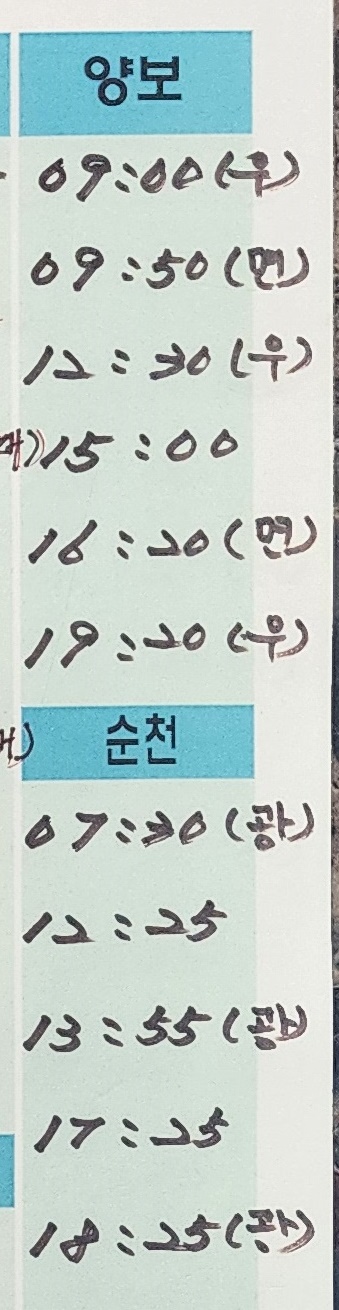 양보
09:00(우)
09:50(면)
12:30(우)
15:00
16:20(면)
19:20(우)
순천
07:30(광)
12:25
13:55(광)
17:25
18:25(광)